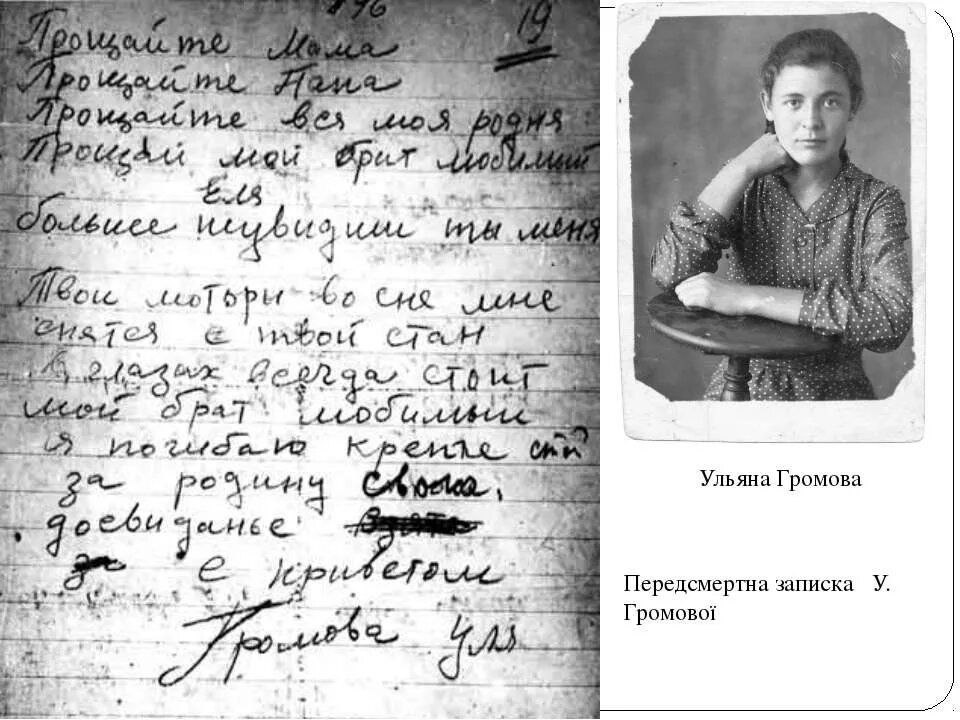 196
19
Прощайте Мама
Прощайте Папа
Прощайте вся моя родня
Прощай мой брат любимый
Еля
больше неувидиш ты меня
Твои моторы во сне мне
снятся с твой стан
В глазах всегда стоит
мой брат любимый
я погибаю крепче стой
за родину свою.
досвиданье
С приветом
Громова Уля
Ульяна Громова
Передсмертна записка У.
Громової